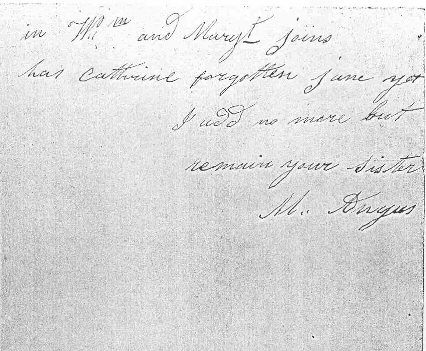 in Wm and Maryt joins
has cathrine forgotten jane yet
I add no more but
remain your sister
M. Angus